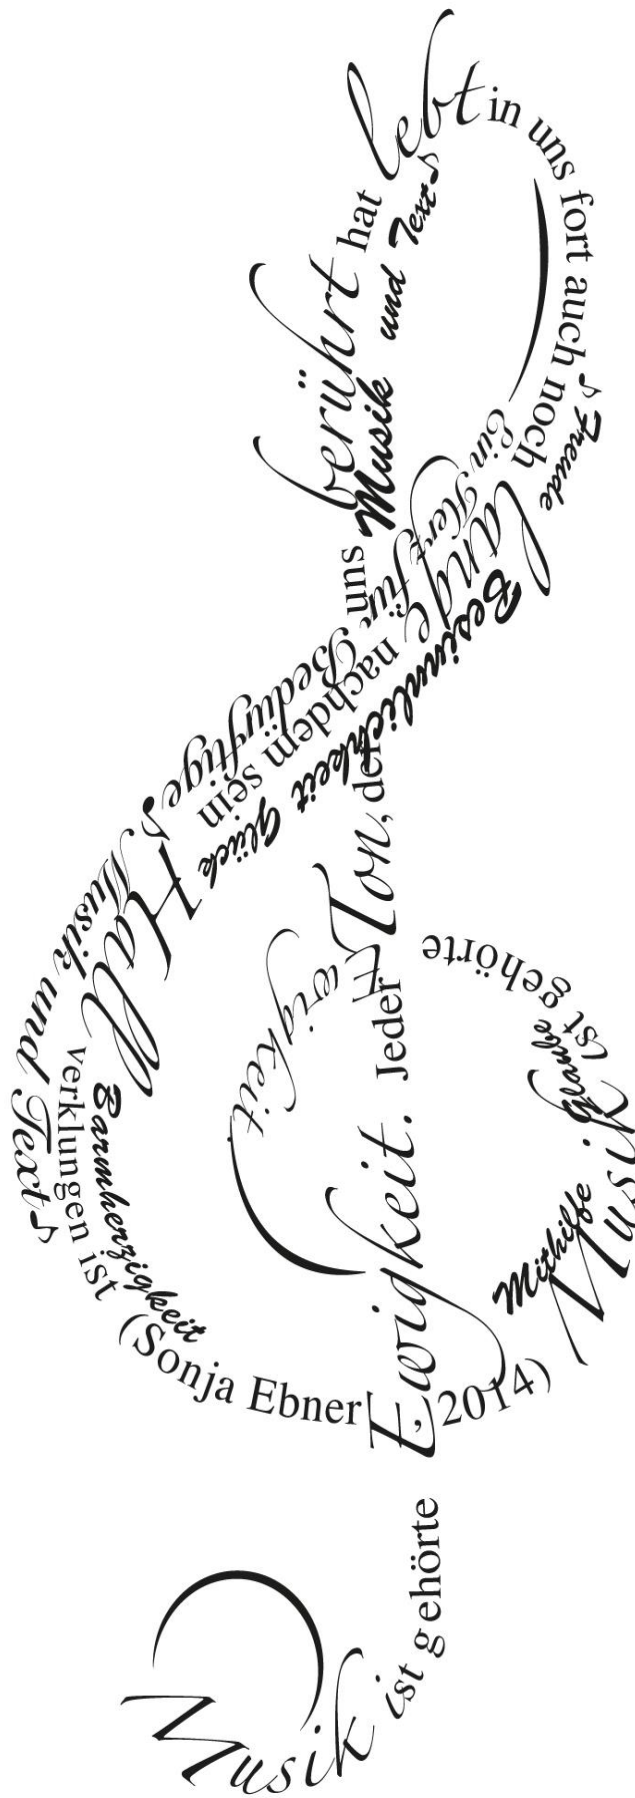 Musik ist gehörte
Ewigkeit. Jeder Ton, der
uns berührt hat
lebt in uns fort auch noch
lange nachdem sein
Hall verklungen ist
(Sonja Ebner, 2014)
Musik ist gehörte
Ewigkeit.
Musik und Text♪
Freude
Ein Herz für Bedürftige♪
Besinnlichkeit
Glück
Musik und Text♪
Barmherzigkeit
Mithilfe
Glaube